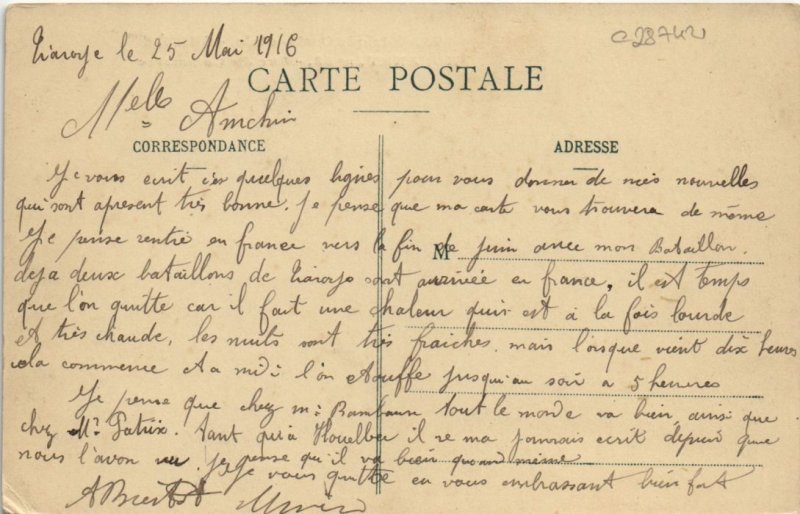 le 25 Mai 1916
C28742
CARTE POSTALE
Melle Amchin
CORRESPONDANCE
ADRESSE
Je vous ecrit ces quelques lignes pour vous donner de mes nouvelles
qui sont apresent très bonne. Je pense que ma carte vous trouvera de même
Je pense rentré en france vers la fin de juin avec mon Bataillon.
M
deja deux bataillons de sont arrivée en france, il est temps
que l'on quitte car il fait une chaleur qui est à la fois lourde
et très chaude, les nuits sont très fraiches mais lorsque vient dix heures
cela commence et a midi l'on etouffe jusqu'au soir a 5 heures
Je pense que chez Mr tout le monde va bien, ainsi que
chez Mr Patrix. tant qu'à il ne ma jamais ecrit depuis que
nous l'avon vu. Je pense qu'il va bien quand même
Je vous quitte en vous embrassant bien fort